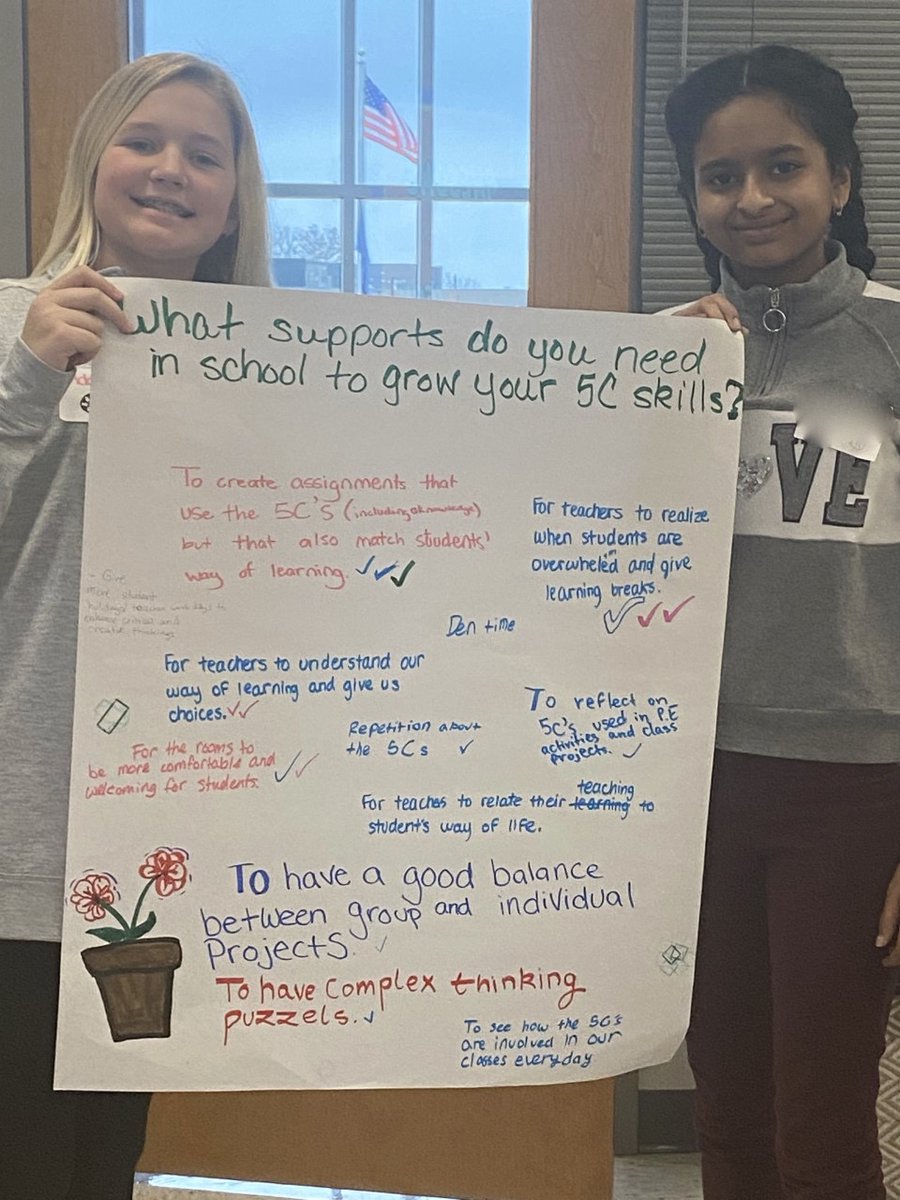 What supports do you need
in school to grow your 5C skills?
To create assignments that
use the 5C's (including aknowledge)
but that also match students'
way of learning.
For teachers to realize
when students are
overwhelem and give
learning breaks.
- Give
more student
holidays/teacher work days to
enhance critical and
creative thinking
Den time
For teachers to understand our
way of learning and give us
choices.
To reflect on
5C's used in P.E
activities and class
projects.
Repetition about
the 5Cs
For the rooms to
be more comfortable and
welcoming for students.
teaching
For teaches to relate their learning to
student's way of life.
To have a good balance
between group and individual
Projects.
To have complex thinking
puzzels.
To see how the 5C's
are involved in our
classes everyday
VE